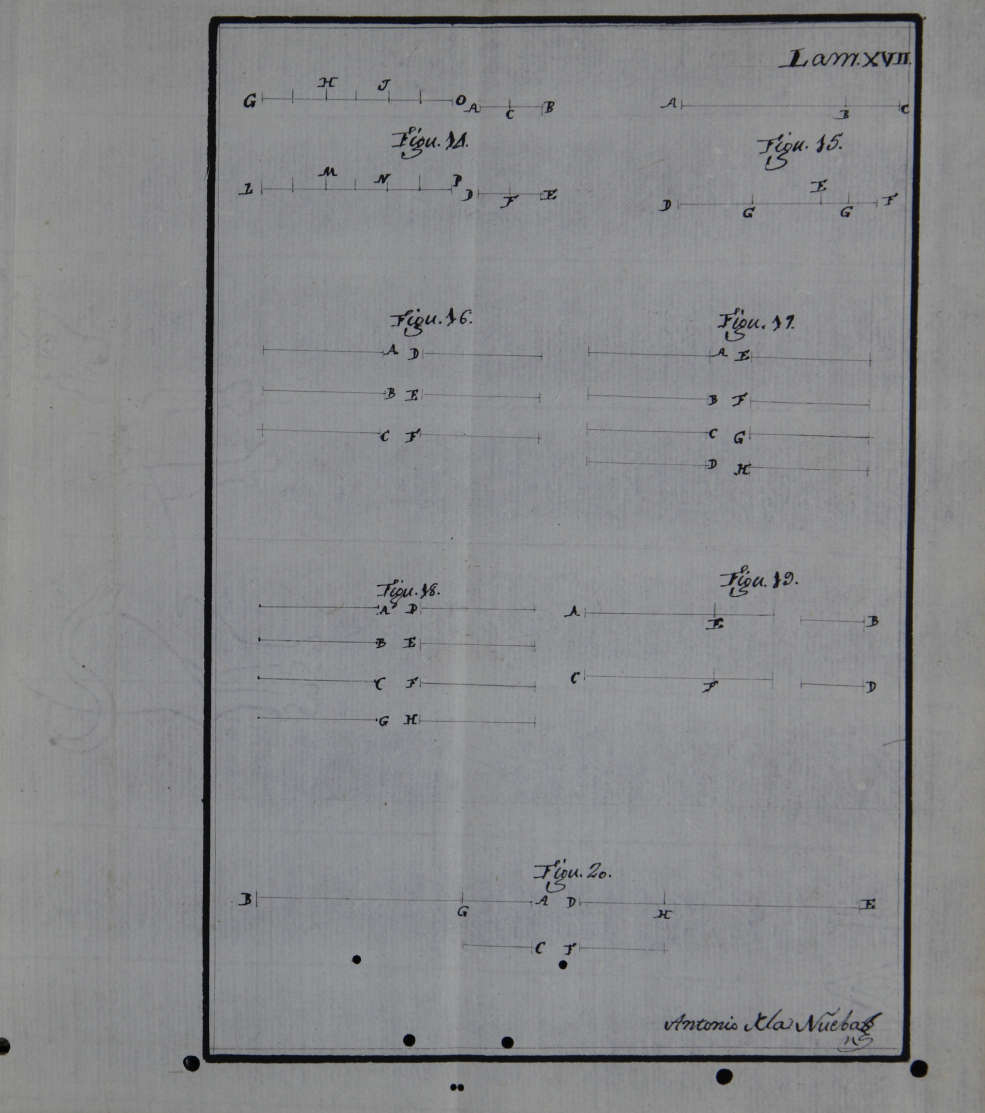 Lam. XVII.
G H J O A C B
A B C
Figu. 14.
Figu. 15.
L M N P D F E
D G E G F
Figu. 16.
Figu. 17.
A D
A E
B E
B F
C F
C G
D H
Figu. 18.
Figu. 19.
A D
A E B
B E
C F
C F D
G H
Figu. 20.
B G A D H E
C F
Antonio